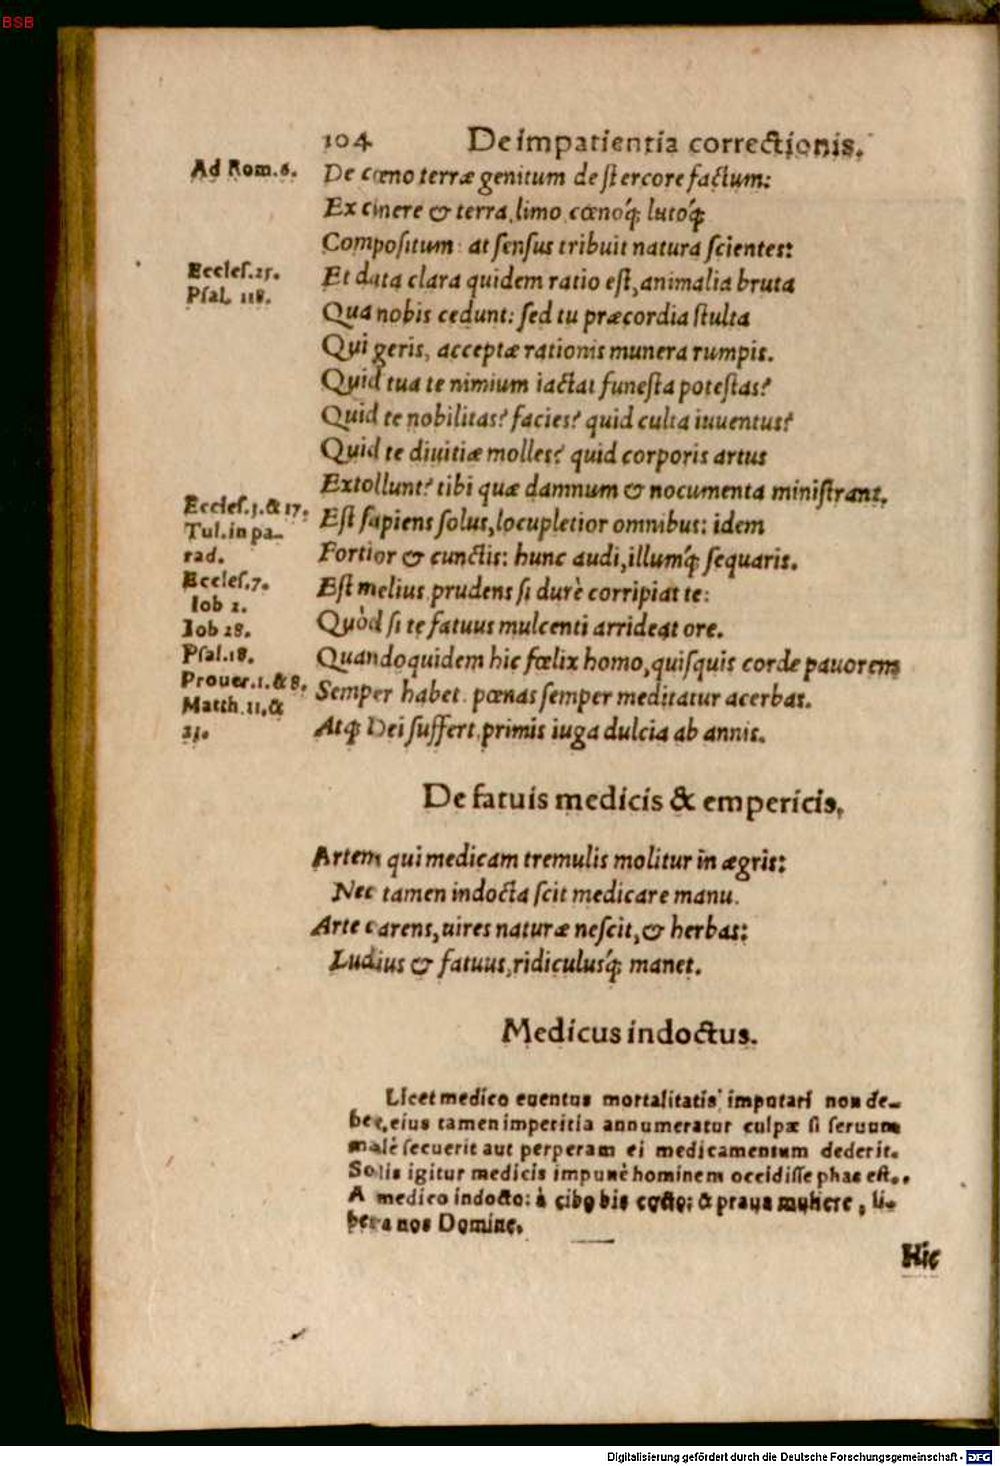 BSB
104 De impatientia correctionis.
Ad Rom. 6. De cœno terræ genitum de stercore factum:
Ex cinere & terra, limo cœnoq́; lutoq́;
Compositum: at sensus tribuit natura scientes:
Eccles. 25. Et data clara quidem ratio est, animalia bruta
Psal. 118. Qua nobis cedunt: sed tu præcordia stulta
Qui geris, acceptæ rationis munera rumpis.
Quid tua te nimium iactat funesta potestas?
Quid te nobilitas? facies? quid culta iuuentus?
Quid te diuitiæ molles? quid corporis artus
Extollunt? tibi quæ damnum & nocumenta ministrant.
Eccles. 3. & 17. Est sapiens solus, locupletior omnibus: idem
Tul. in pa-
rad. Fortior & cunctis: hunc audi, illumq́; sequaris.
Eccles. 7. Est melius prudens si durè corripiat te:
Iob 2.
Iob 28. Quòd si te fatuus mulcenti arrideat ore.
Psal. 18. Quandoquidem hic fœlix homo, quisquis corde pauorem
Prouer. 1. & 8. Semper habet. pœnas semper meditatur acerbas.
Matth. 11. &
21. Atq; Dei suffert primis iuga dulcia ab annis.
De fatuis medicis & empericis.
Artem qui medicam tremulis molitur in ægris:
Nec tamen indocta scit medicare manu.
Arte carens, uires naturæ nescit, & herbas:
Ludius & fatuus, ridiculusq́; manet.
Medicus indoctus.
Licet medico euentus mortalitatis imputari non de-
bet, eius tamen imperitia annumeratur culpæ si seruum
malè secuerit aut perperam ei medicamentum dederit.
Solis igitur medicis impunè hominem occidisse phas est.
A medico indocto: à cibo bis cocto: & praua muliere, li-
bera nos Domine.
Hic
Digitalisierung gefördert durch die Deutsche Forschungsgemeinschaft - DFG